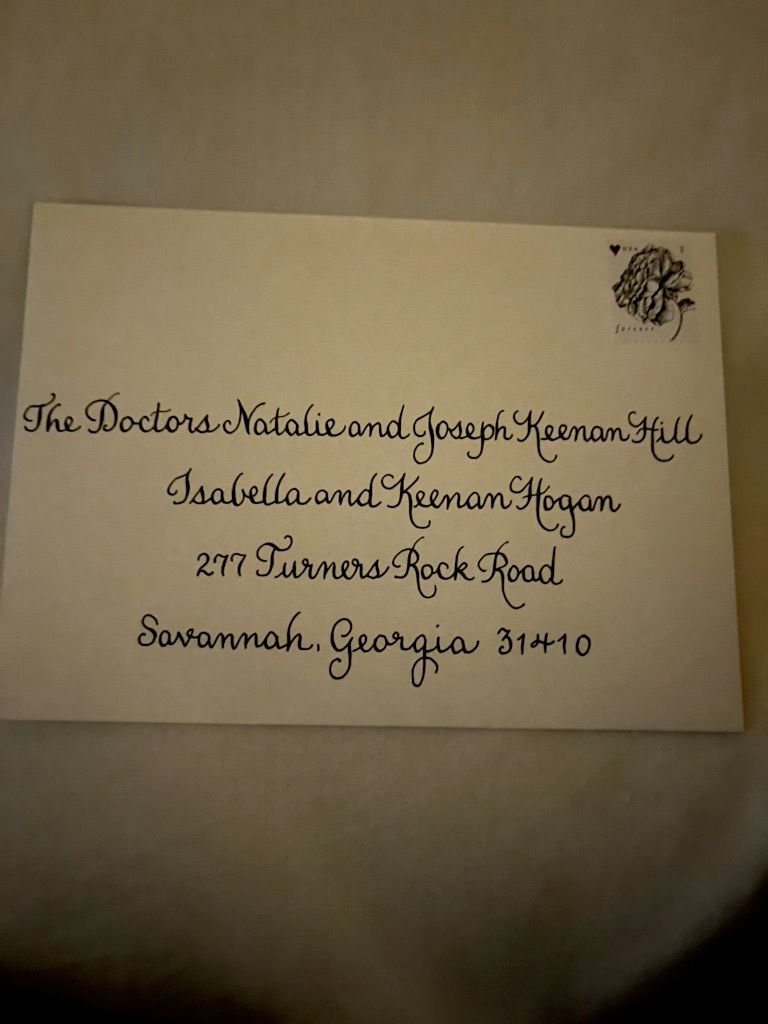 The Doctors Natalie and Joseph Keenan Hill
Isabella and Keenan Hogan
277 Turners Rock Road
Savannah, Georgia 31410
forever